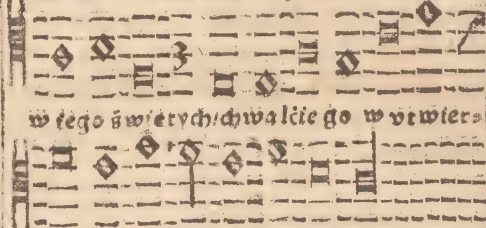 w iego świętych/chwalćie go w vtwier=